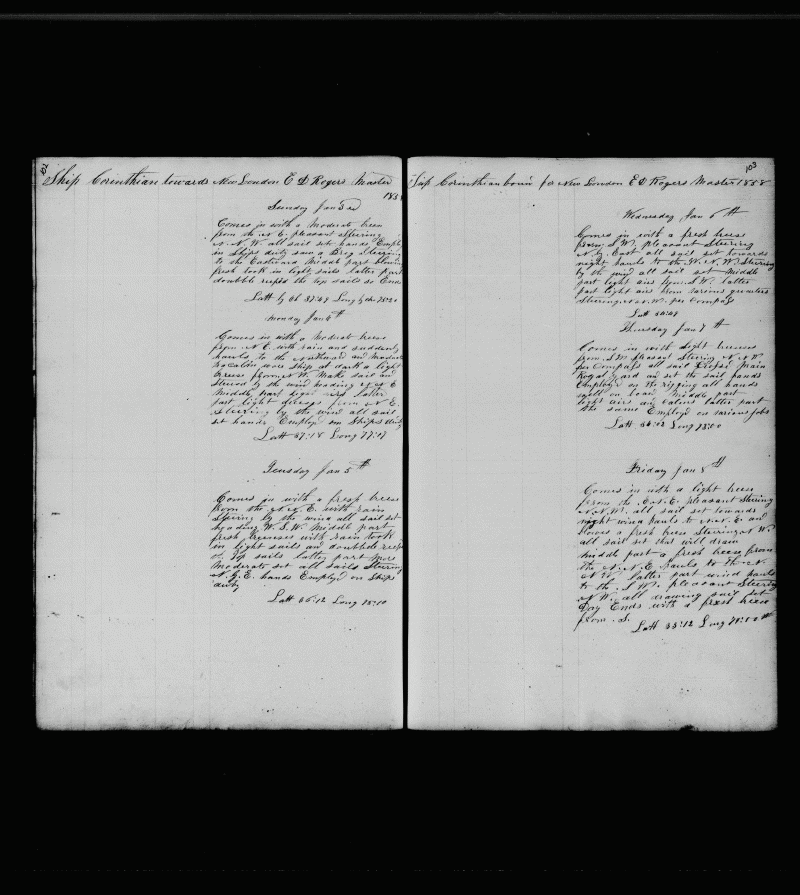 Ship Corinthian towards New London E D Rogers Master
185
Sunday Jan 3rd
Comes in with a Moderate breen
from the N E. pleasant Steering
N. N. W. all sail set hands Emply
in Ships duty saw a Brig Steering
to the Eastward Middle part
fresh took in light sails latter part
doubble reefed the top sails so Ends
Latt by ob 37:49 Long by chr 75:20
Monday Jan 4th
Comes in with a Moderat breese
from N E. with rain and suddenly
hauls to the Northward and
ship at dark a light
breese from N W. Make sail and
Steerd by the wind heading N E
Middle part latter
part light from N E.
Steering by the wind all sail
set hands Employd on Ships duty
Latt 37:18 Long 77:17
Teusday Jan 5th
Comes in with a fresh breese
from the N. N. E. with rain
Steering by the wind all sail set
heading W. S. W. Middle part
fresh breeses with rain took
in light sails and doubble reefd
top sails latter part More
Moderate set all sails Steering
N. E. hands Employd on Ships
duty
Latt 36:12 Long 75:10
103
Ship Corinthian boun for New London E D Rogers Master 1858
Wednesday Jan 6th
Comes in with a fresh breese
from S W. pleasant Steering
N by East all sail set towards
night hauls to the W. N. W. Steering
by the wind all sail set Middle
part light airs from S. W. latter
part light airs from various quarters
Steering N. N. W. per Compass
Latt 34:49
Thursday Jan 7th
Comes in with light breeses
from S W pleasant Steering N N W
per Compass all sail Main
Royal yard and set the sail hands
Employd on the rigging all hands
well on board Middle part
light airs and calms latter part
the same Employd on various jobs
Latt 34:02 Long 75:00
Friday Jan 8th
Comes in with a light breen
from the E. N. E. pleasant Steering
N. N. W. all sail set towards
night wind hauls to N. N. E. and
blows a fresh breen Steering N W
all sail set that will draw
middle part a fresh breen from
the N. N. E hauls to the N.
N W. latter part wind hauls
to the S W. pleasant Steering
N W. all drawing sail set
Day Ends with a fresh breen
from S.
Latt 33:12 Long